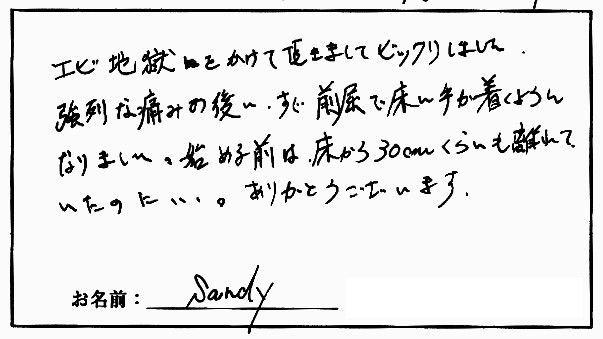 エビ地獄をかけて頂きましてビックリしました.
強烈な痛みの後に、すぐ前屈で床に手が着くように
なりました。始める前は、床から30cmくらいも離れて
いたのに...。ありがとうございます.
お名前: Sandy